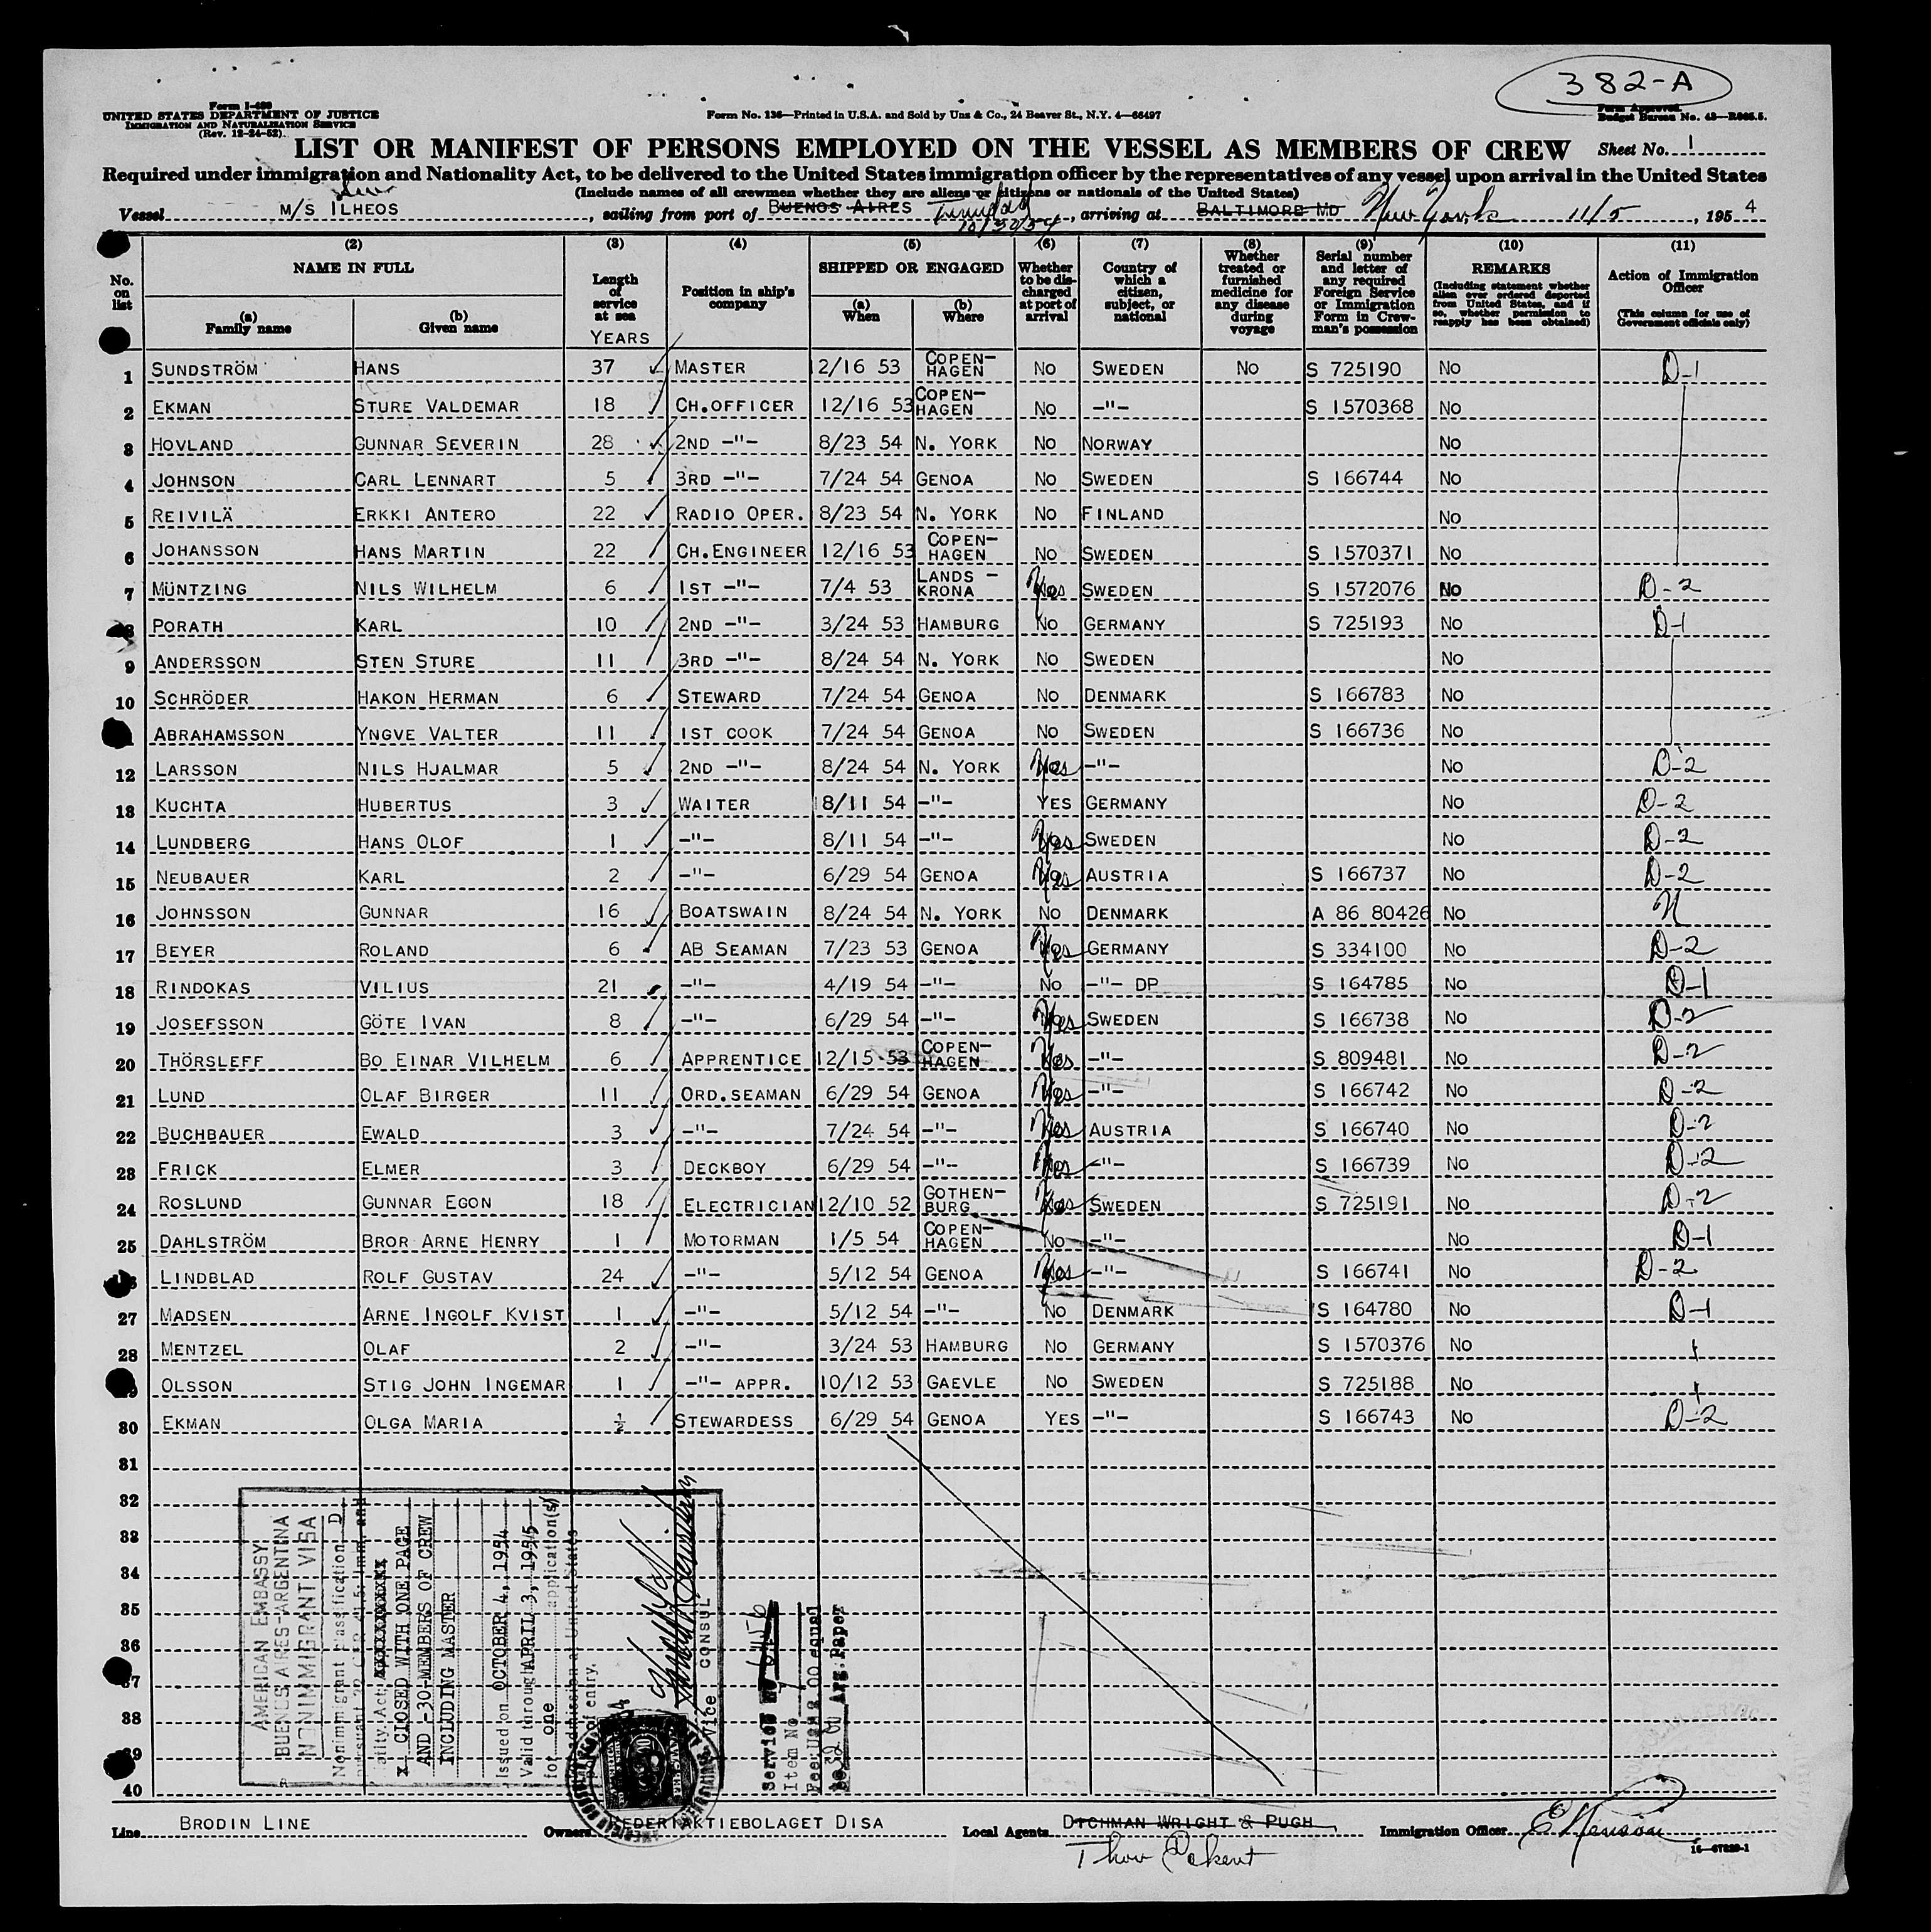 382-A
Form I-480
UNITED STATES DEPARTMENT OF JUSTICE
IMMIGRATION AND NATURALIZATION SERVICE
(Rev. 12-24-52)
Form No. 136—Printed in U.S.A. and Sold by Unz & Co., 24 Beaver St., N.Y. 4—66497
Form Approved.
Budget Bureau No. 43—R065.5.
LIST OR MANIFEST OF PERSONS EMPLOYED ON THE VESSEL AS MEMBERS OF CREW Sheet No. 1
Required under immigration and Nationality Act, to be delivered to the United States immigration officer by the representatives of any vessel upon arrival in the United States
(Include names of all crewmen whether they are aliens or citizens or nationals of the United States)
Vessel M/S ILHEOS, sailing from port of BUENOS AIRES Trinidad 10/30/54, arriving at BALTIMORE MD New York 11/5, 1954
No. on list
(2) NAME IN FULL (a) Family name (b) Given name
(3) Length of service at sea YEARS
(4) Position in ship's company
(5) SHIPPED OR ENGAGED (a) When (b) Where
(6) Whether to be discharged at port of arrival
(7) Country of which a citizen, subject, or national
(8) Whether treated or furnished medicine for any disease during voyage
(9) Serial number and letter of any required Foreign Service or Immigration Form in Crewman's possession
(10) REMARKS (Including statement whether alien ever ordered deported from United States, and if so, whether permission to reapply has been obtained)
(11) Action of Immigration Officer (This column for use of Government officials only)
1 SUNDSTRÖM HANS 37 MASTER 12/16 53 COPENHAGEN NO SWEDEN NO S 725190 NO D-1
2 EKMAN STURE VALDEMAR 18 CH.OFFICER 12/16 53 COPENHAGEN NO —"— S 1570368 NO
3 HOVLAND GUNNAR SEVERIN 28 2ND —"— 8/23 54 N. YORK NO NORWAY NO
4 JOHNSON CARL LENNART 5 3RD —"— 7/24 54 GENOA NO SWEDEN S 166744 NO
5 REIVILÄ ERKKI ANTERO 22 RADIO OPER. 8/23 54 N. YORK NO FINLAND NO
6 JOHANSSON HANS MARTIN 22 CH.ENGINEER 12/16 53 COPENHAGEN NO SWEDEN S 1570371 NO
7 MÜNTZING NILS WILHELM 6 1ST —"— 7/4 53 LANDSKRONA Yes SWEDEN S 1572076 NO D-2
8 PORATH KARL 10 2ND —"— 3/24 53 HAMBURG NO GERMANY S 725193 NO D-1
9 ANDERSSON STEN STURE 11 3RD —"— 8/24 54 N. YORK NO SWEDEN NO
10 SCHRÖDER HAKON HERMAN 6 STEWARD 7/24 54 GENOA NO DENMARK S 166783 NO
ABRAHAMSSON YNGVE VALTER 11 1ST COOK 7/24 54 GENOA NO SWEDEN S 166736 NO
12 LARSSON NILS HJALMAR 5 2ND —"— 8/24 54 N. YORK Yes —"— NO D-2
13 KUCHTA HUBERTUS 3 WAITER 8/11 54 —"— YES GERMANY NO D-2
14 LUNDBERG HANS OLOF 1 —"— 8/11 54 —"— Yes SWEDEN NO D-2
15 NEUBAUER KARL 2 —"— 6/29 54 GENOA Yes AUSTRIA S 166737 NO D-2
16 JOHNSSON GUNNAR 16 BOATSWAIN 8/24 54 N. YORK NO DENMARK A 86 80426 NO N
17 BEYER ROLAND 6 AB SEAMAN 7/23 53 GENOA Yes GERMANY S 334100 NO D-2
18 RINDOKAS VILIUS 21 —"— 4/19 54 —"— NO —"— DP S 164785 NO D-1
19 JOSEFSSON GÖTE IVAN 8 —"— 6/29 54 —"— Yes SWEDEN S 166738 NO D-2
20 THÖRSLEFF BO EINAR VILHELM 6 APPRENTICE 12/15 53 COPENHAGEN Yes —"— S 809481 NO D-2
21 LUND OLAF BIRGER 11 ORD.SEAMAN 6/29 54 GENOA Yes —"— S 166742 NO D-2
22 BUCHBAUER EWALD 3 —"— 7/24 54 —"— Yes AUSTRIA S 166740 NO D-2
23 FRICK ELMER 3 DECKBOY 6/29 54 —"— Yes —"— S 166739 NO D-2
24 ROSLUND GUNNAR EGON 18 ELECTRICIAN 12/10 52 GOTHENBURG Yes SWEDEN S 725191 NO D-2
25 DAHLSTRÖM BROR ARNE HENRY 1 MOTORMAN 1/5 54 COPENHAGEN NO —"— NO D-1
LINDBLAD ROLF GUSTAV 24 —"— 5/12 54 GENOA Yes —"— S 166741 NO D-2
27 MADSEN ARNE INGOLF KVIST 1 —"— 5/12 54 —"— NO DENMARK S 164780 NO D-1
28 MENTZEL OLAF 2 —"— 3/24 53 HAMBURG NO GERMANY S 1570376 NO
OLSSON STIG JOHN INGEMAR 1 —"— APPR. 10/12 53 GAEVLE NO SWEDEN S 725188 NO
30 EKMAN OLGA MARIA ½ STEWARDESS 6/29 54 GENOA YES —"— S 166743 NO D-2
31
32
33
34
35
36
37
38
39
40
AMERICAN EMBASSY
BUENOS AIRES-ARGENTINA
NONIMMIGRANT VISA
Nonimmigrant classification D
CLOSED WITH ONE PAGE
AND -30-MEMBERS OF CREW
INCLUDING MASTER
Issued on OCTOBER 4, 1954
Valid through APRIL 3, 1955
for one application(s)
for admission at United States
port of entry.
Vice CONSUL
Service No 6456
Item No
Fee: U.S. .00 equal
to Arg. Paper
Line BRODIN LINE Owners REDERIAKTIEBOLAGET DISA Local Agents DICHMAN WRIGHT & PUGH Immigration Officer
Thor Eckert
16—67829-1